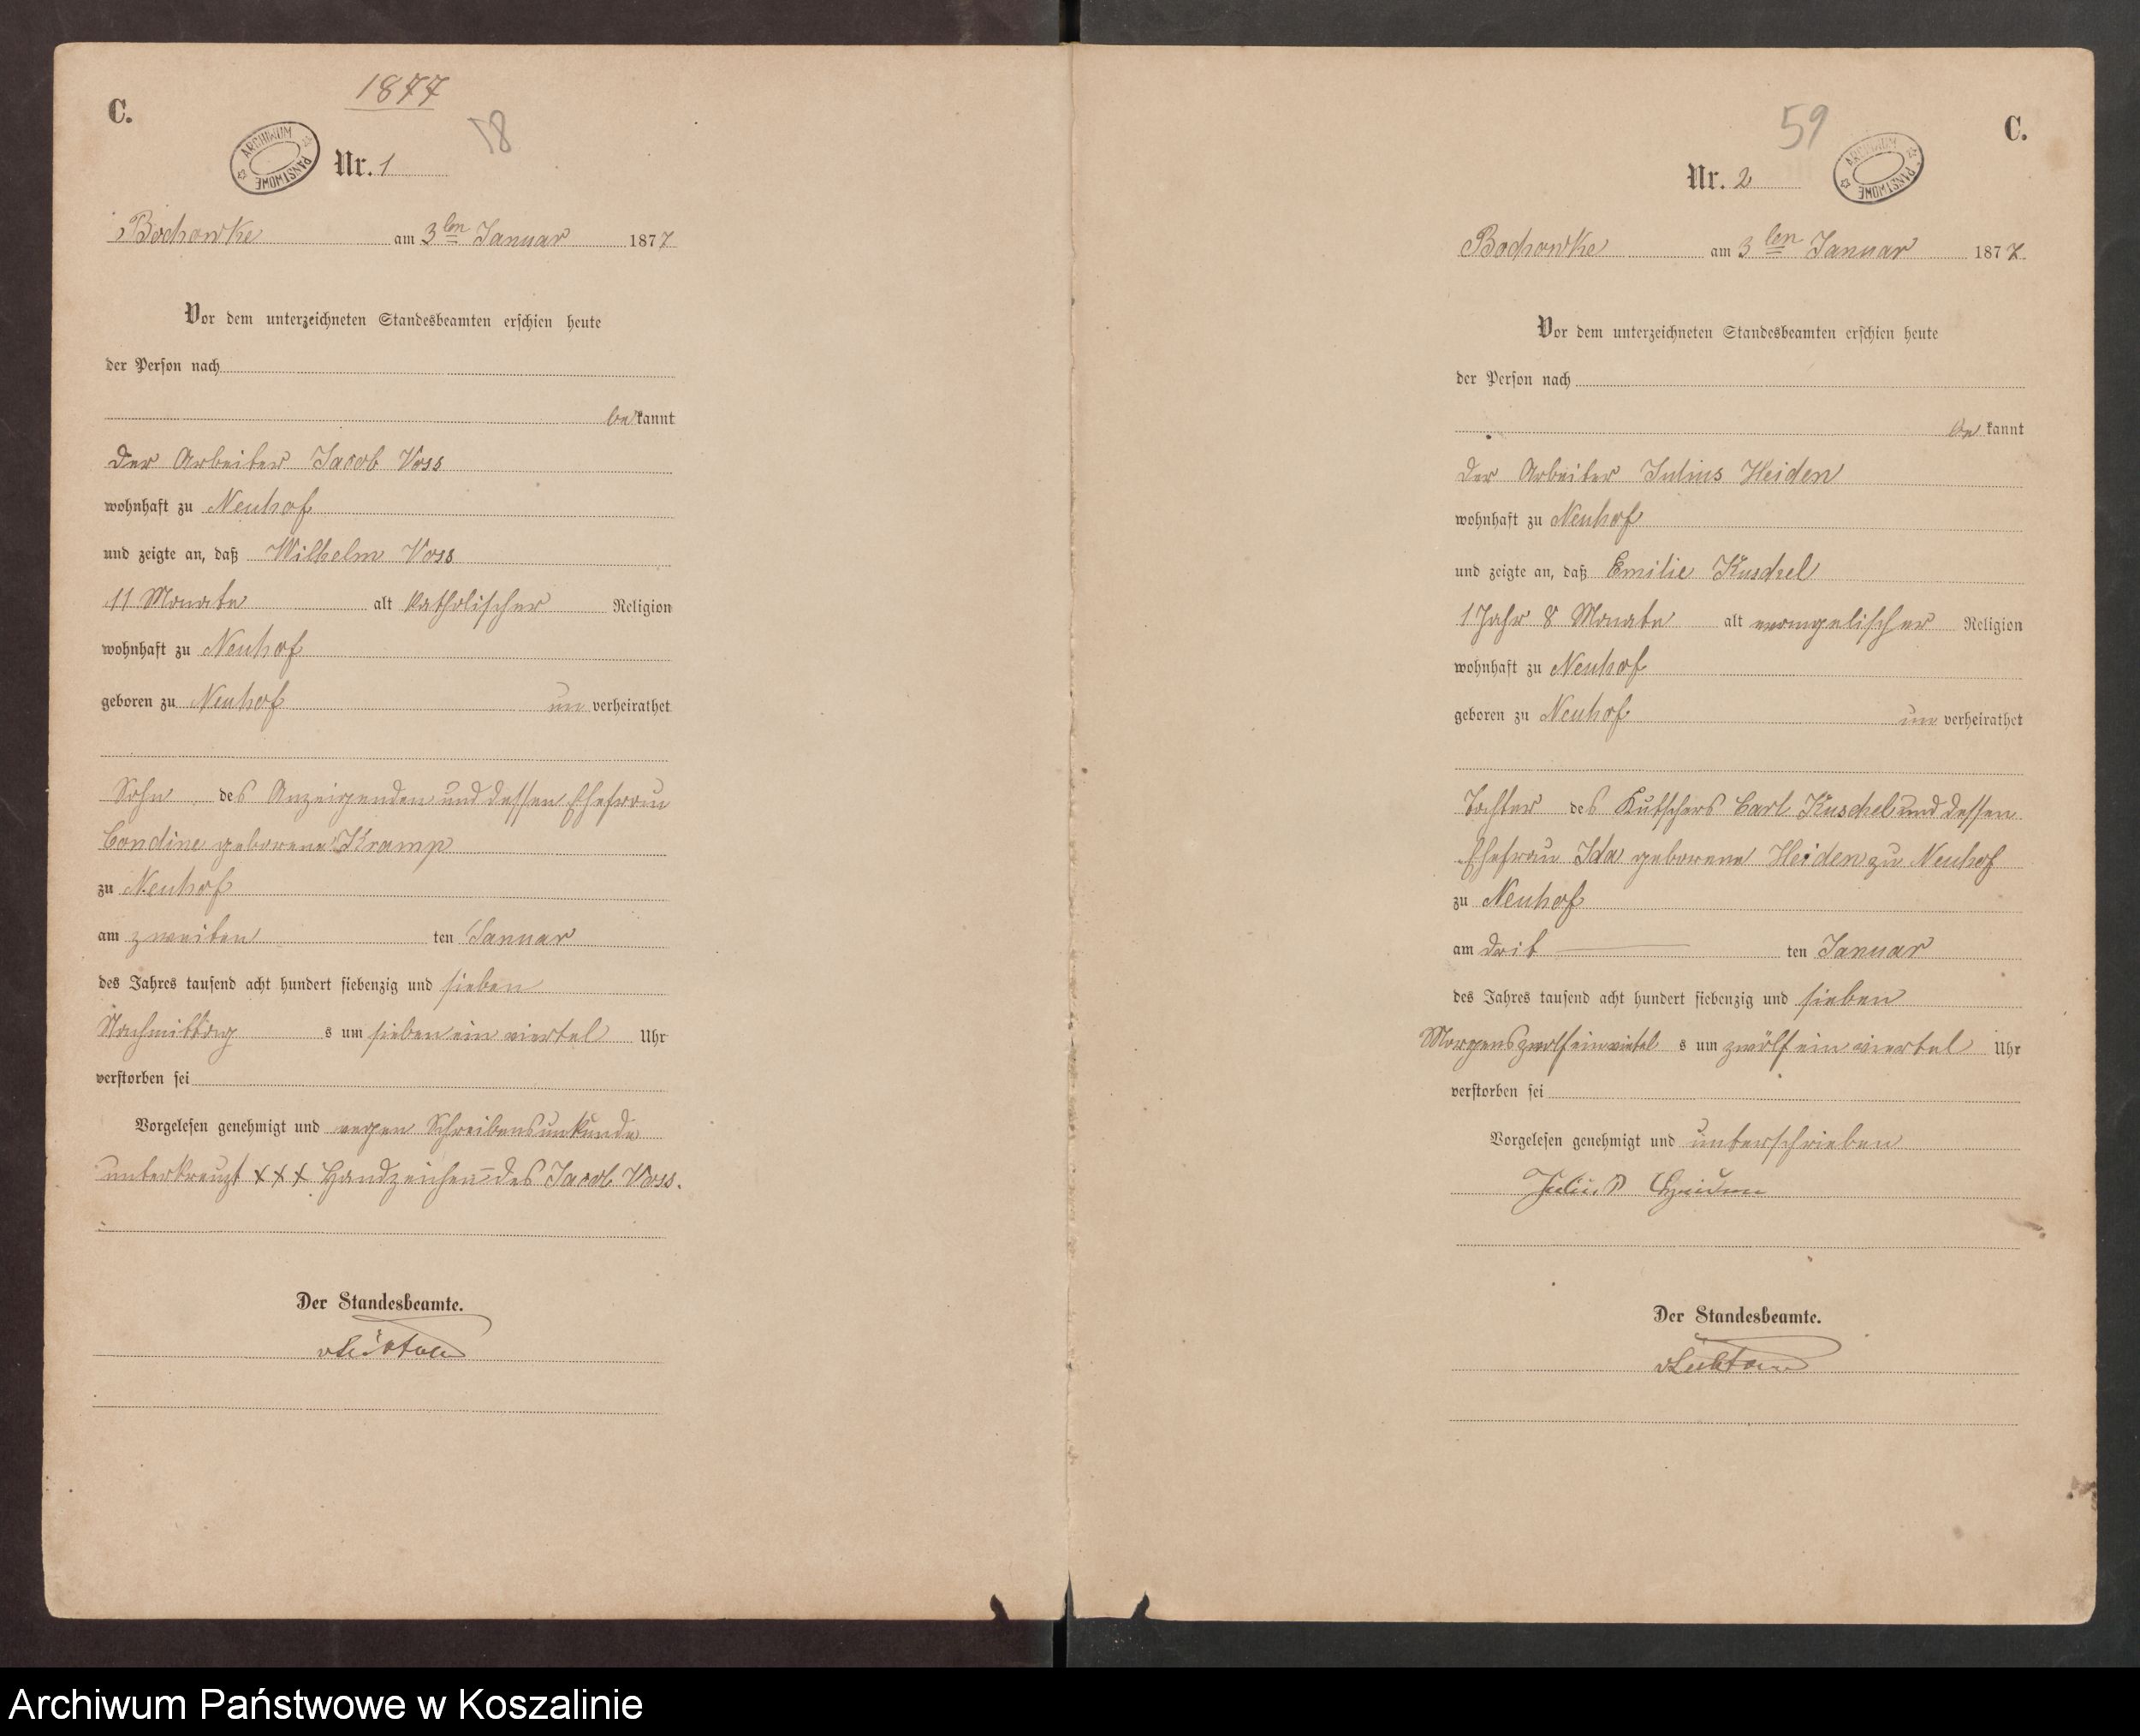 1877
C.
58
ARCHIWUM PAŃSTWOWE
Nr. 1
Bochowke am 3ten Januar 1877
Vor dem unterzeichneten Standesbeamten erschien heute
der Person nach
be kannt
der Arbeiter Jacob Voss
wohnhaft zu Neuhof
und zeigte an, daß Wilhelm Voss
11 Monate alt katholischer Religion
wohnhaft zu Neuhof
geboren zu Neuhof un verheirathet
Sohn des Anzeigenden und dessen Ehefrau
geborene Kramp
zu Neuhof
am zweiten ten Januar
des Jahres tausend acht hundert siebenzig und sieben
Nachmittag s um sieben ein viertel Uhr
verstorben sei
Vorgelesen genehmigt und wegen Schreibensunkunde
unterkreuzt XXX Handzeichen des Jacob Voss.
Der Standesbeamte.
59
C.
ARCHIWUM PAŃSTWOWE
Nr. 2
Bochowke am 3ten Januar 1877.
Vor dem unterzeichneten Standesbeamten erschien heute
der Person nach
be kannt
der Arbeiter Julius Heiden
wohnhaft zu Neuhof
und zeigte an, daß Emilie Kuschel
1 Jahr 8 Monate alt evangelischer Religion
wohnhaft zu Neuhof
geboren zu Neuhof un verheirathet
Tochter des Kutschers Carl Kuschel und dessen
Ehefrau Ida geborene Heiden zu Neuhof
zu Neuhof
am drit ten Januar
des Jahres tausend acht hundert siebenzig und sieben
Morgens zwölf ein viertel s um zwölf ein viertel Uhr
verstorben sei
Vorgelesen genehmigt und unterschrieben
Julius Heiden
Der Standesbeamte.
Archiwum Państwowe w Koszalinie